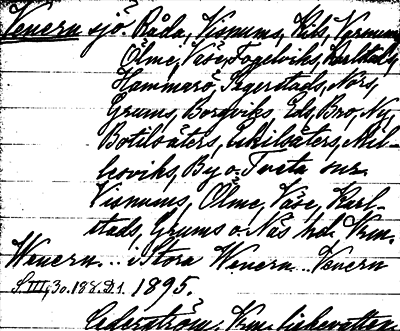 Venern sjö. Råda, Visnums, Kils, Varnum,
Ölme, Väse, Fogelviks, Karlstads,
Hammarö, Segerstads, Nors,
Grums, Borgviks, Eds, Bro, Ny,
Botilsäters, Eskilsäters, Mil-
lesviks, By o. Tveta snr.
Visnums, Ölme, Väse, Karl-
stads, Grums o. Näs hd. Vrm.
Wenern... i Stora Wenern... Venern
S. III, 30. 188. D.1. 1895.
Cederström, Vrm.